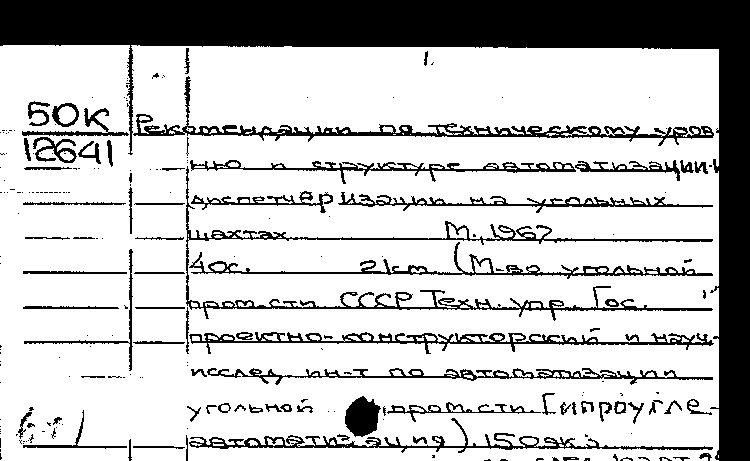 1.
50К
12641
Рекомендации по техническому уров-
ню и структуре автоматизации и
диспетчеризации на угольных
шахтах. М., 1967.
40с. 21см (М-во угольной
пром-сти СССР Техн. упр. Гос.
проектно-конструкторский и науч.-
исслед. ин-т по автоматизации
угольной пром-сти. Гипроугле-
автоматизация). 150экз.